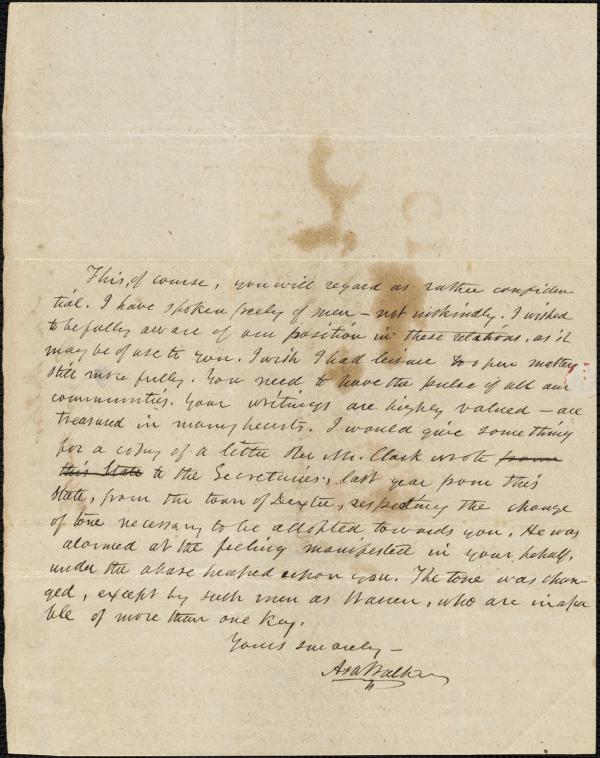 This, of course, you will regard as rather confiden
tial. I have spoken freely of men – not unkindly. I wished
to be fully aware of our position in these relations, as it
may be of use to you. I wish I had leisure to open matters
still more fully. You need to have the pulse of all our
communities. Your writings are highly valued – are
treasured in many hearts. I would give something
for a copy of a letter Rev. Mr. Clark wrote from
this State to the Secretaries, last year from this
State, from the town of Dexter, respecting the change
of tone necessary to be adopted towards you. He was
alarmed at the feeling manifested in your behalf,
under the abuse heaped upon you. The tone was chan-
ged, except by such men as Warren, who are incapa
ble of more than one key.
Yours sincerely –
Asa Walker